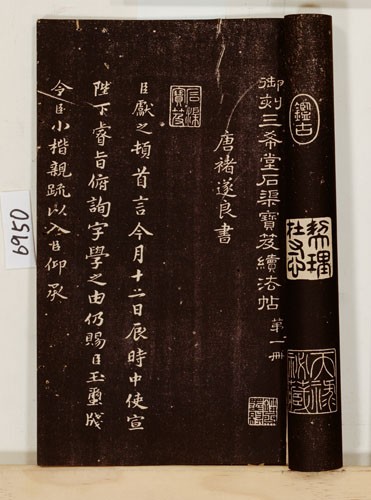 鑑古
御刻三希堂石渠寶芨續法帖 第一冊
唐褚遂良書
石渠寶芨
臣獻之頓首言今月十二日辰時中使宣
陛下睿旨俯詢字學之由仍賜臣玉璽牋
令臣小楷親疏以入臣仰承
6950